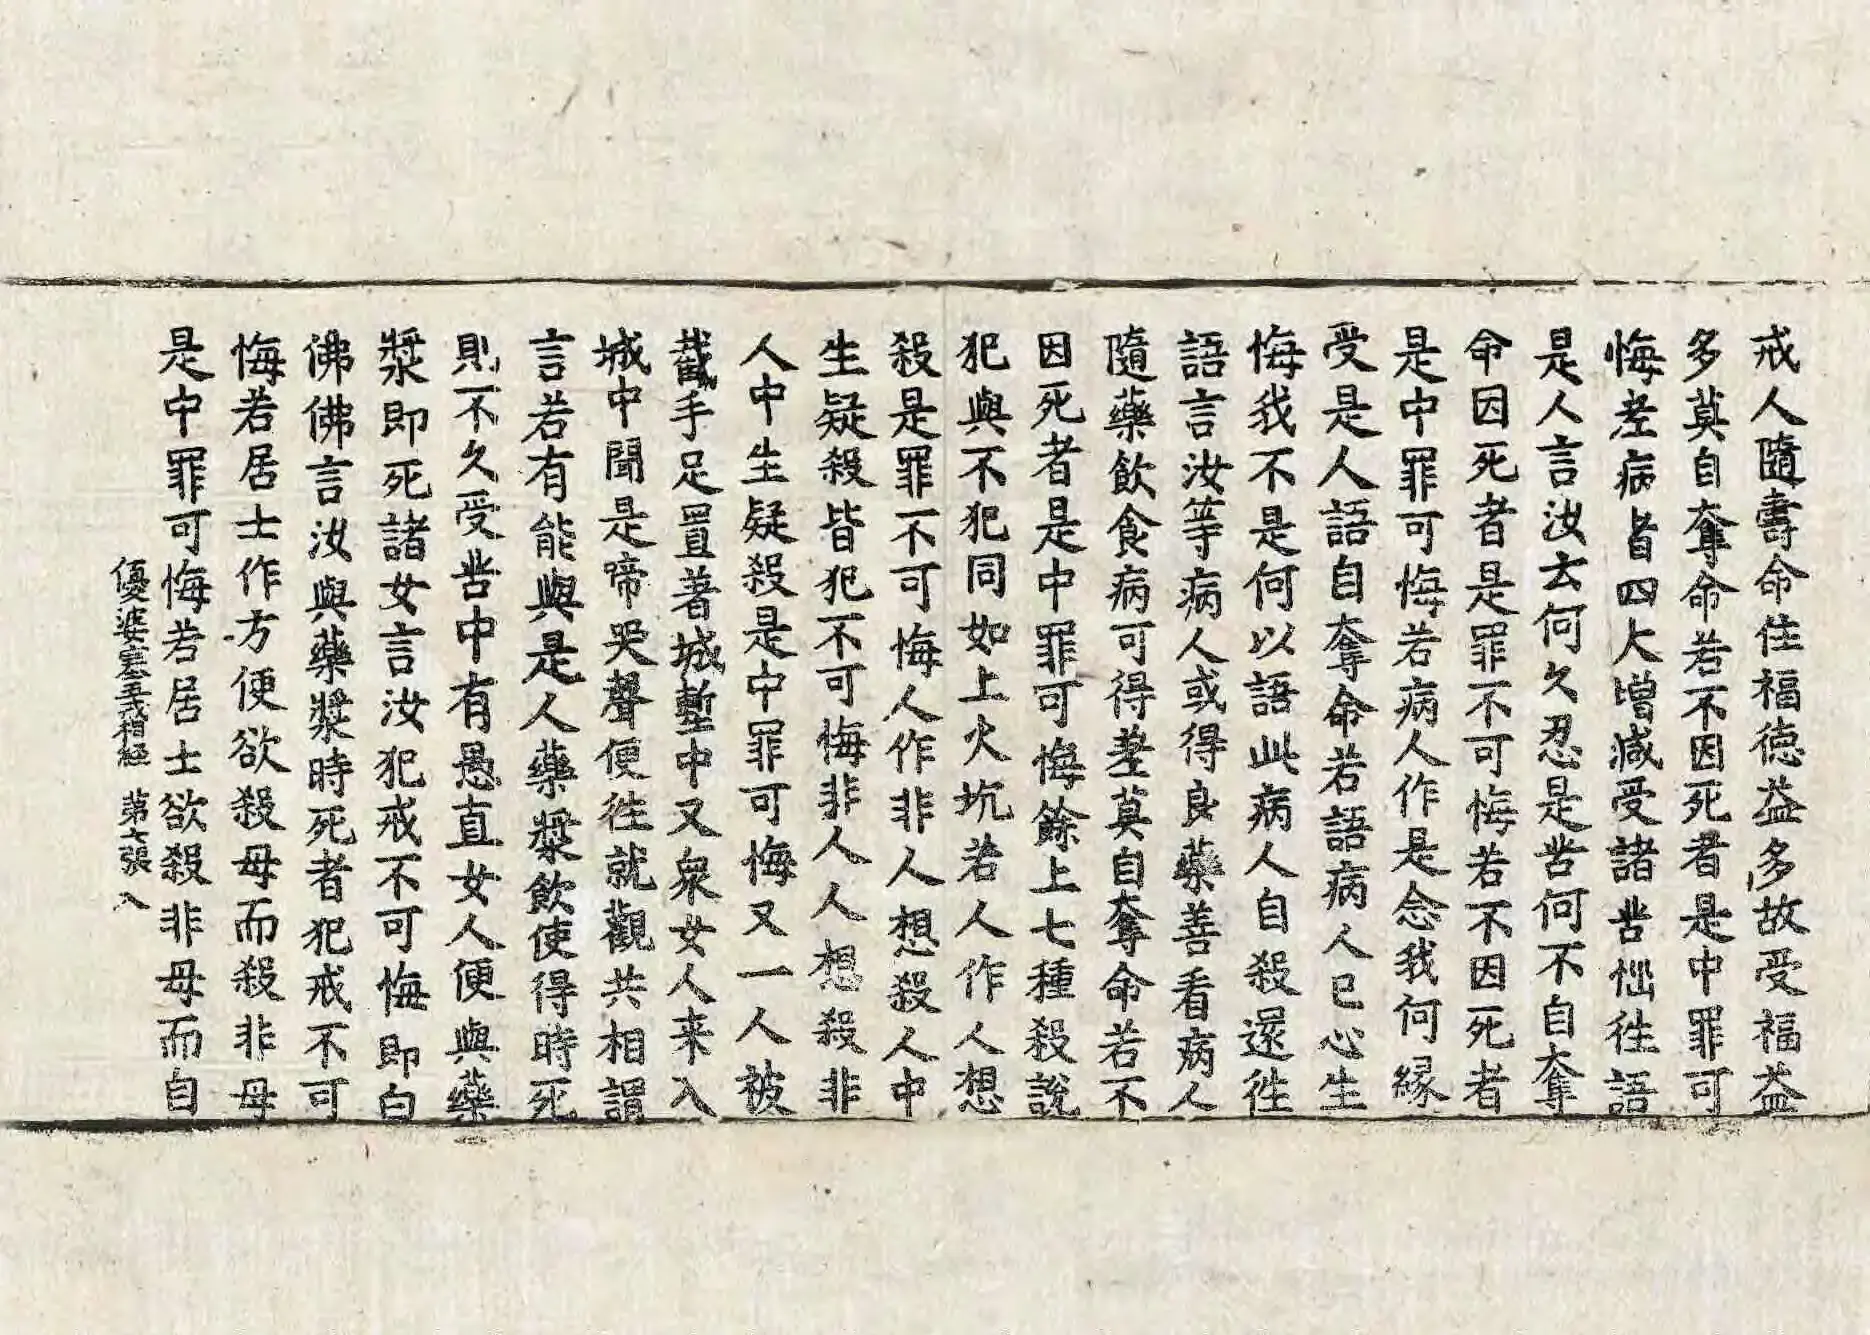 戒人隨壽命住福德益多故受福益
多莫自奪命若不因死者是中罪可
悔差病者四大增減受諸苦惱往語
是人言汝云何久忍是苦何不自奪
命因死者是罪不可悔若不因死者
是中罪可悔若病人作是念我何緣
受是人語自奪命若語病人已心生
悔我不是何以語此病人自殺還往
語言汝等病人或得良藥善看病人
隨藥飲食病可得差莫自奪命若不
因死者是中罪可悔餘上七種殺說
犯與不犯同如上火坑若人作人想
殺是罪不可悔人作非人想殺人中
生疑殺皆犯不可悔非人人想殺非
人中生疑殺是中罪可悔又一人被
截手足置著城塹中又衆女人来入
城中聞是啼哭聲便往就觀共相謂
言若有能與是人藥漿飲使得時死
則不久受苦中有愚直女人便與藥
漿即死諸女言汝犯戒不可悔即白
佛佛言汝與藥漿時死者犯戒不可
悔若居士作方便欲殺母而殺非母
是中罪可悔若居士欲殺非母而自
優婆塞五戒相經 第七張 入